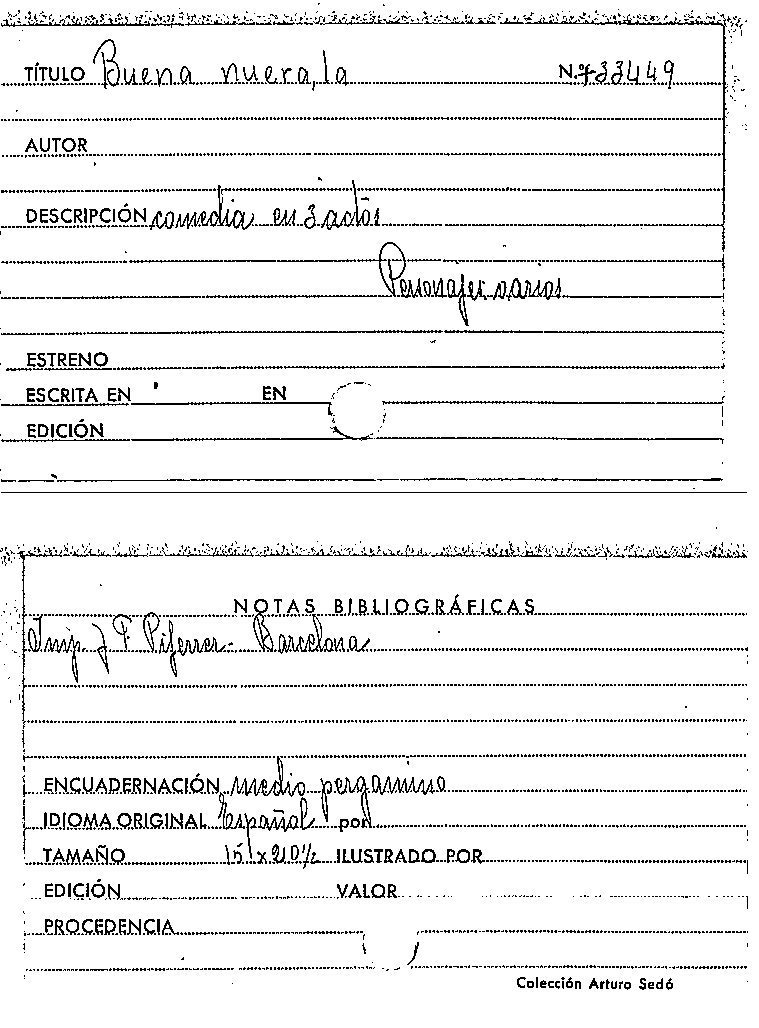 TÍTULO Buena nuera, la N.º 33449
AUTOR
DESCRIPCIÓN comedia en 3 actos
Personajes varios
ESTRENO
ESCRITA EN EN
EDICIÓN
NOTAS BIBLIOGRÁFICAS
Imp. J F. Piferrer - Barcelona
ENCUADERNACIÓN medio pergamino
IDIOMA ORIGINAL Español por
TAMAÑO 15 x 21 0½ ILUSTRADO POR
EDICIÓN VALOR
PROCEDENCIA
Colección Arturo Sedó